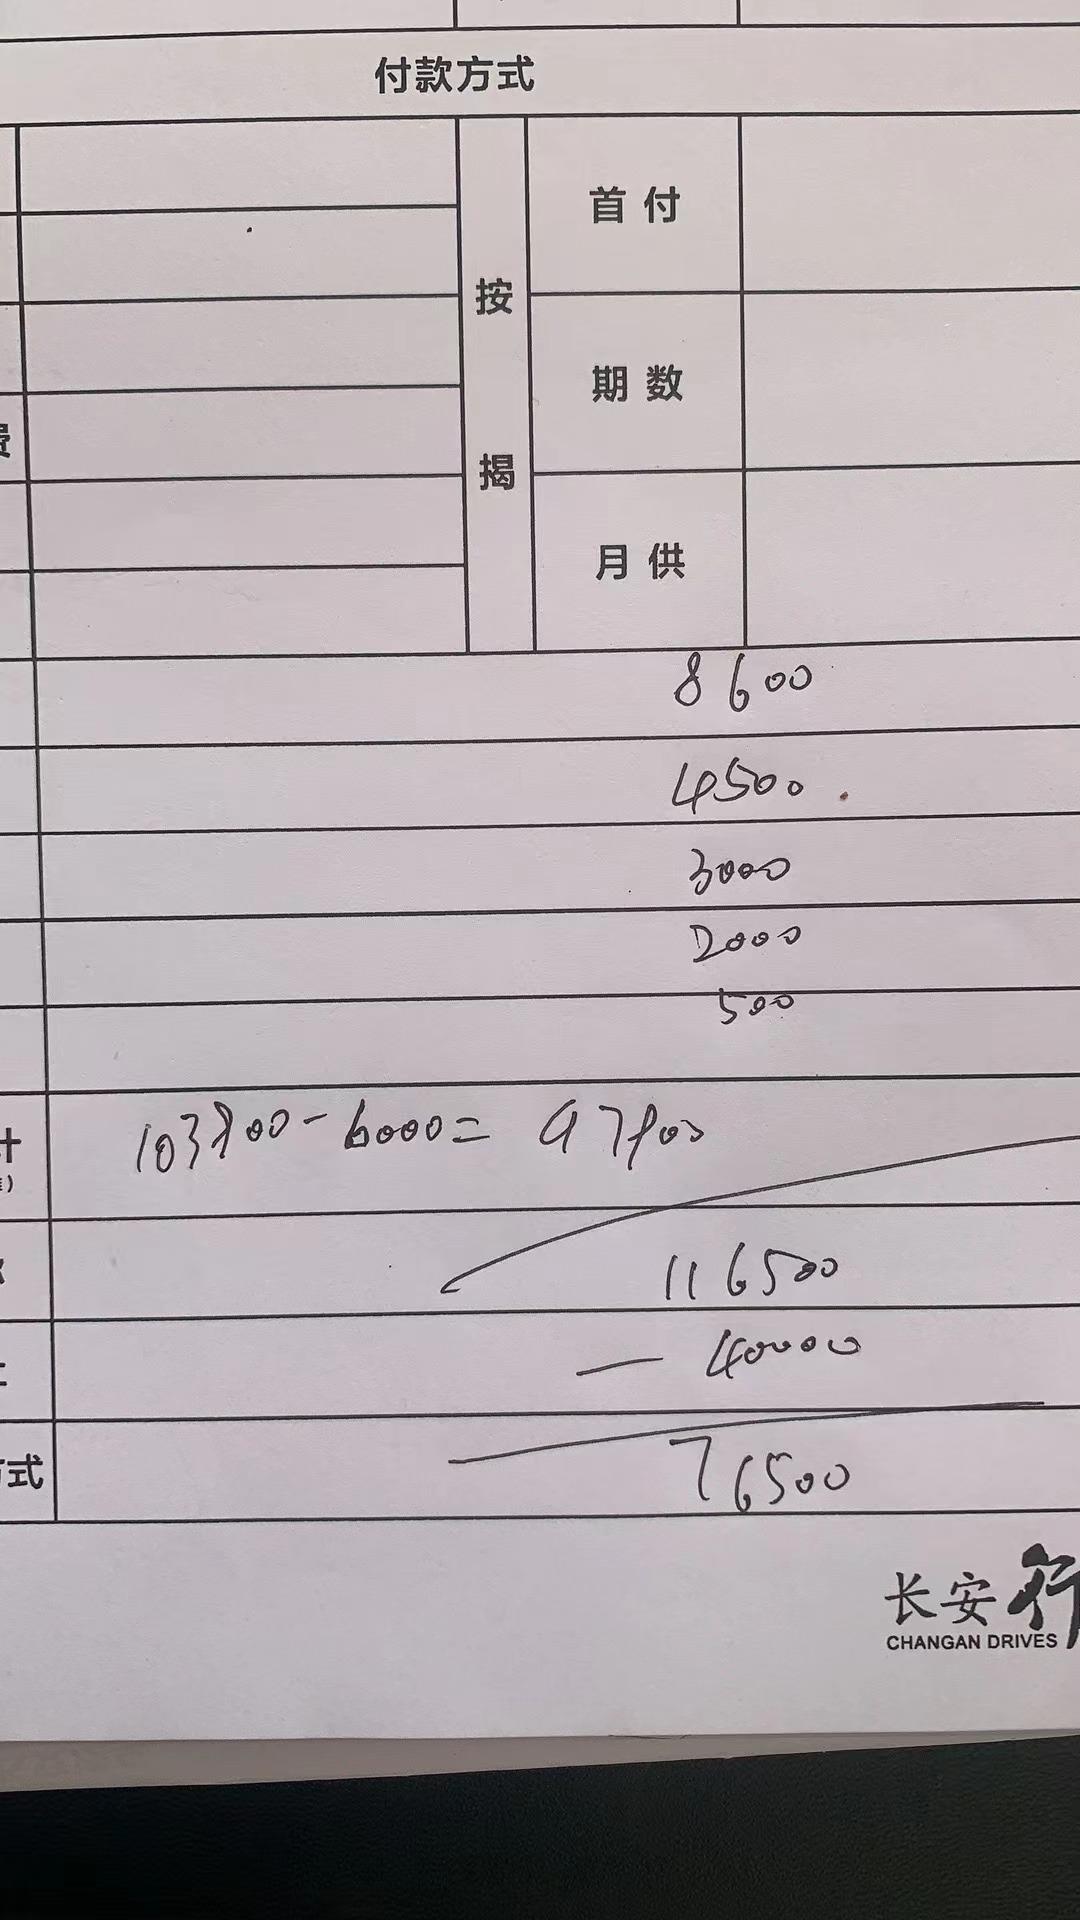 付款方式
首付
按
期数
费
揭
月供
8600
4500
3000
2000
500
103900-6000=97900
计
116500
-40000
76500
式
长安行
CHANGAN DRIVES